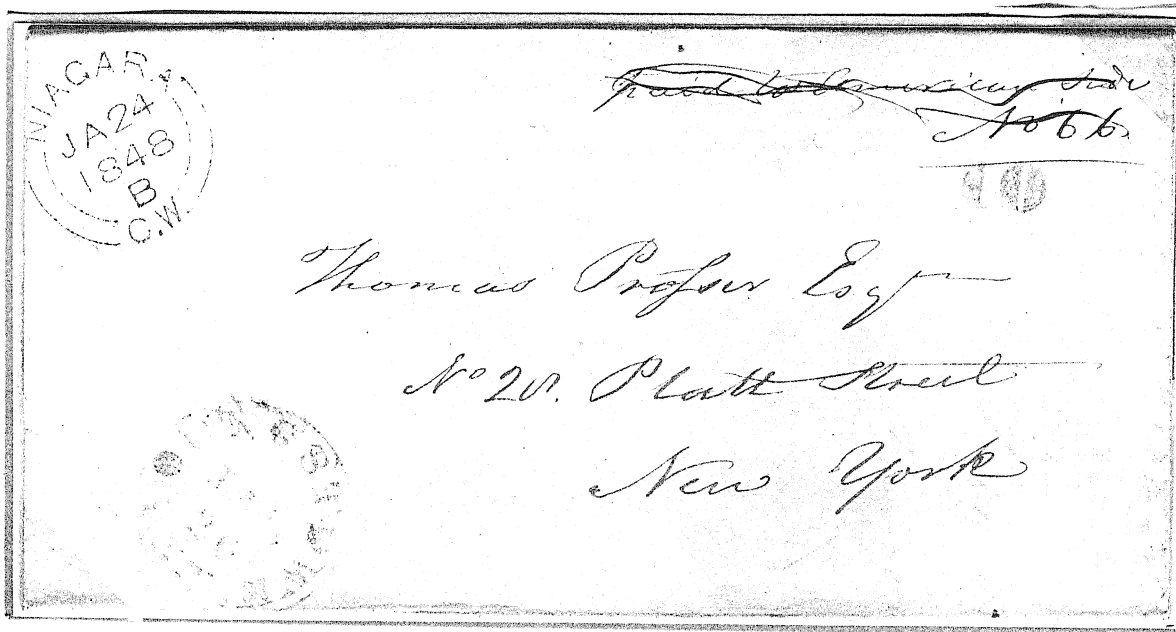 NIAGARA
JA 24
1848
B
C.W.
paid to American side
No 66
Thomas Proſser Esqr
No 28. Platt Street
New York